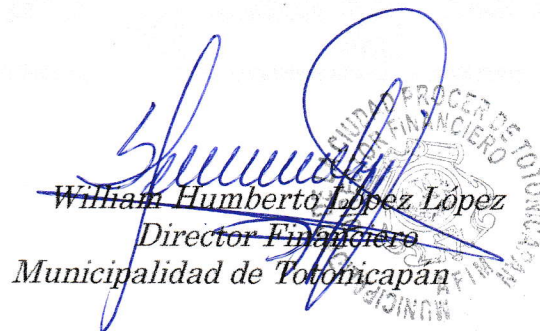 William Humberto López López
Director Financiero
Municipalidad de Totonicapán
CIUDAD PROCER DE TOTONICAPAN
DIRECTOR FINANCIERO
AFIM